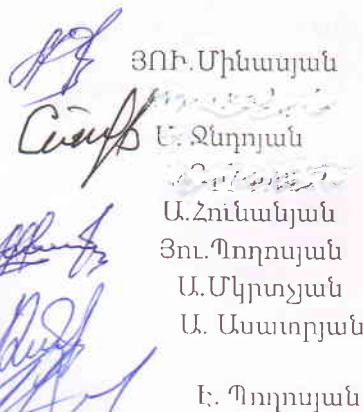 ՅՈՒ.Մինասյան
Ս. Ջնդոյան
Ա.Հունանյան
Յու.Պողոսյան
Ա.Մկրտչյան
Ա. Ասատրյան
Է. Պողոսյան